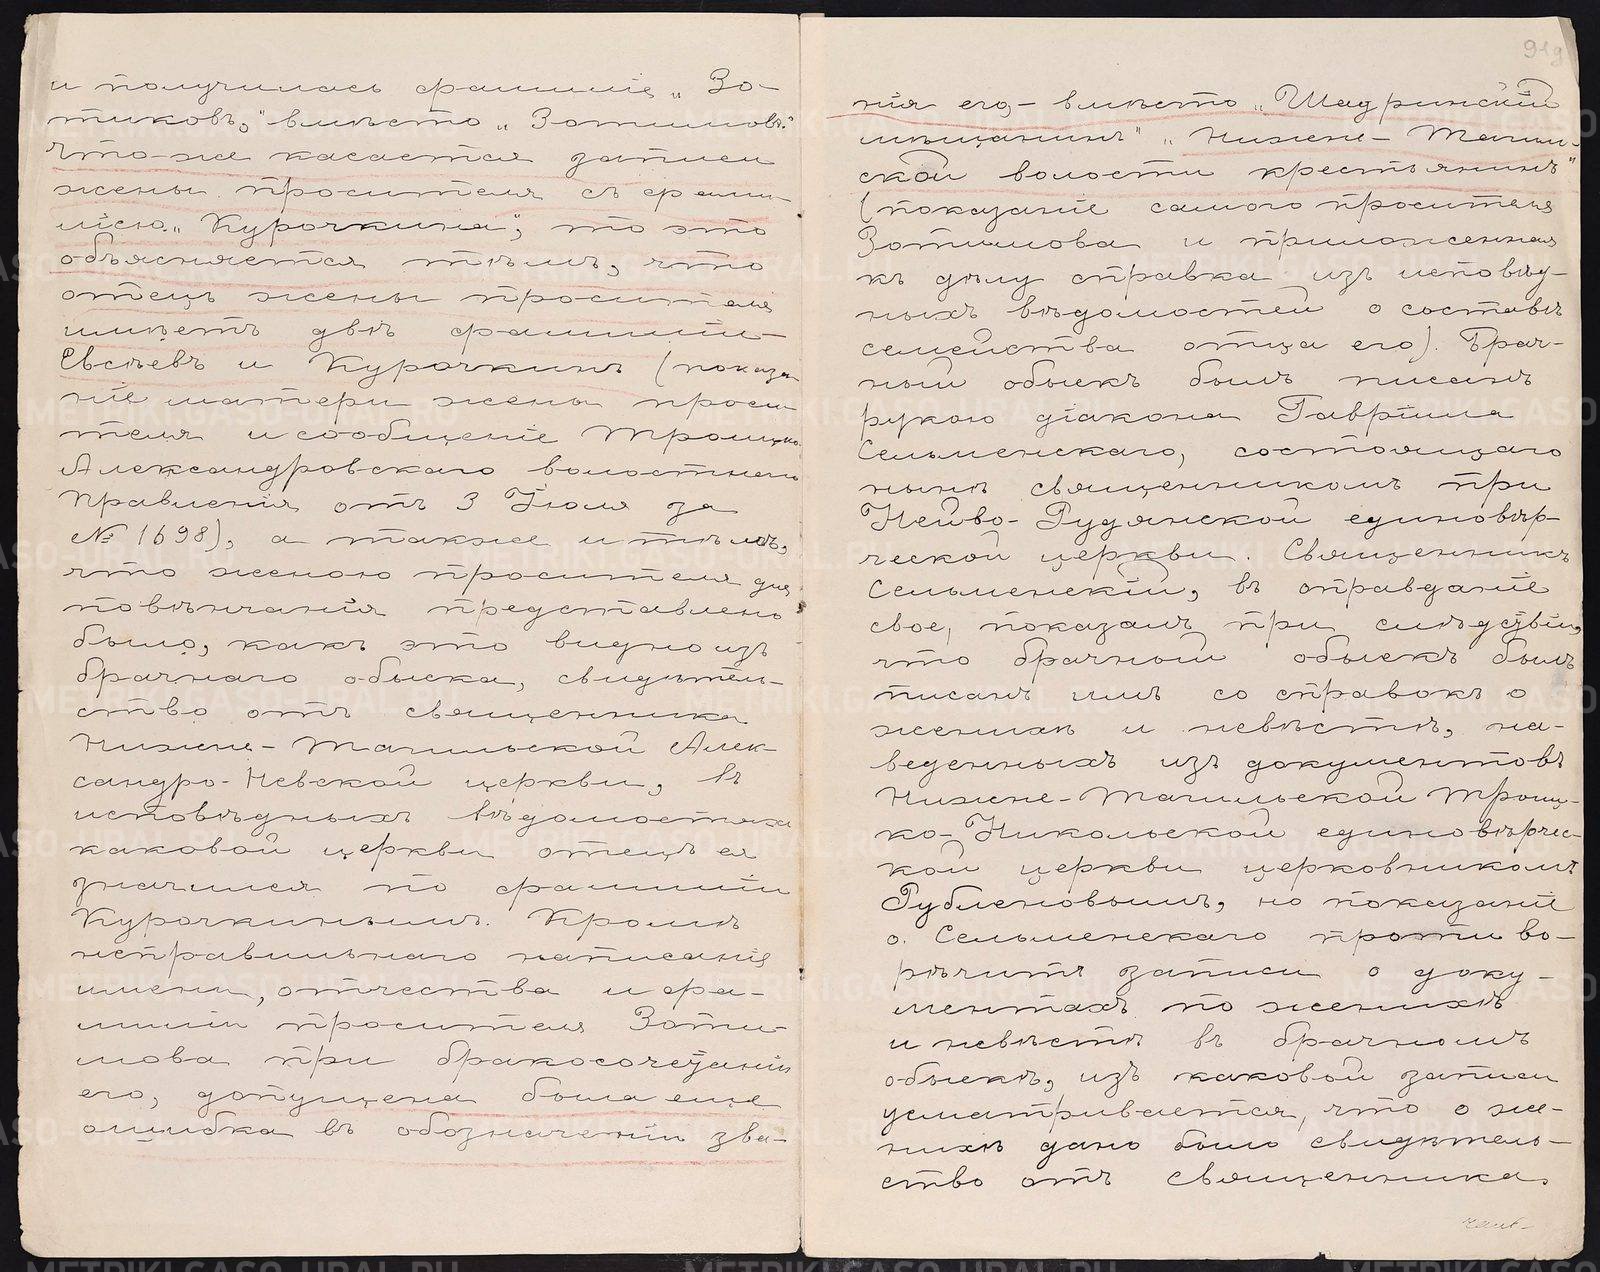 и получилась фамилія „Зо-
тиковъ," вмѣсто „Зотимовъ."
Что-же касается записи
жены просителя съ фами-
ліею „Курочкина", то это
объясняется тѣмъ, что
отецъ жены просителя
имѣетъ двѣ фамиліи-
Евсѣевъ и Курочкинъ (показа-
ніе матери жены проси-
теля и сообщеніе Троицко-
Александровскаго волостнаго
Правленія отъ 3 Іюля за
№ 1698), а также и тѣмъ,
что женою просителя для
повѣнчанія представлено
было, какъ это видно изъ
брачнаго обыска, свидѣтель-
ство отъ священника
Нижне-Тагильской Алек-
сандро-Невской церкви, въ
исповѣдныхъ вѣдомостяхъ
каковой церкви отецъ ея
значился по фамиліи
Курочкинымъ. Кромѣ
неправильнаго написанія
имени, отчества и фа-
миліи просителя Зоти-
мова при бракосочетаніи
его, допущена была еще
ошибка въ обозначеніи зва-
919
нія его,- вмѣсто „Шадринскій
мѣщанинъ" „Нижне-Тагиль-
ской волости крестьянинъ"
(показаніе самого просителя
Зотимова и приложенная
къ дѣлу справка изъ исповѣд-
ныхъ вѣдомостей о составѣ
семейства отца его). Брач-
ный обыскъ былъ писанъ
рукою діакона Гавріила
Сельменскаго, состоящаго
нынѣ священникомъ при
Нейво-Рудянской единовѣр-
ческой церкви. Священникъ
Сельменскій, въ оправданіе
свое, показалъ при слѣдствіи,
что брачный обыскъ былъ
писанъ имъ со справокъ о
женихѣ и невѣстѣ, на-
веденныхъ изъ документовъ
Нижне-Тагильской Трои-
ко-Никольской единовѣрчес-
кой церкви церковникомъ
Рубленовымъ, но показаніе
о. Сельменскаго противо-
рѣчитъ записи о доку-
ментахъ по женихѣ
и невѣстѣ въ брачномъ
обыскѣ, изъ каковой записи
усматривается, что о же-
нихѣ дано было свидѣтель-
ство отъ священника